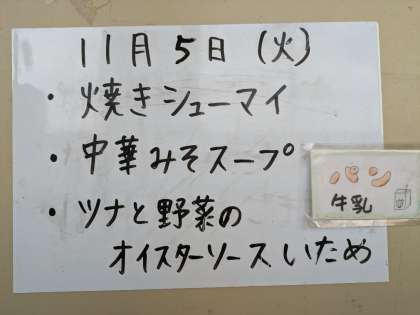 11月5日(火)
・焼きシューマイ
・中華みそスープ
・ツナと野菜の
オイスターソースいため
パン
牛乳